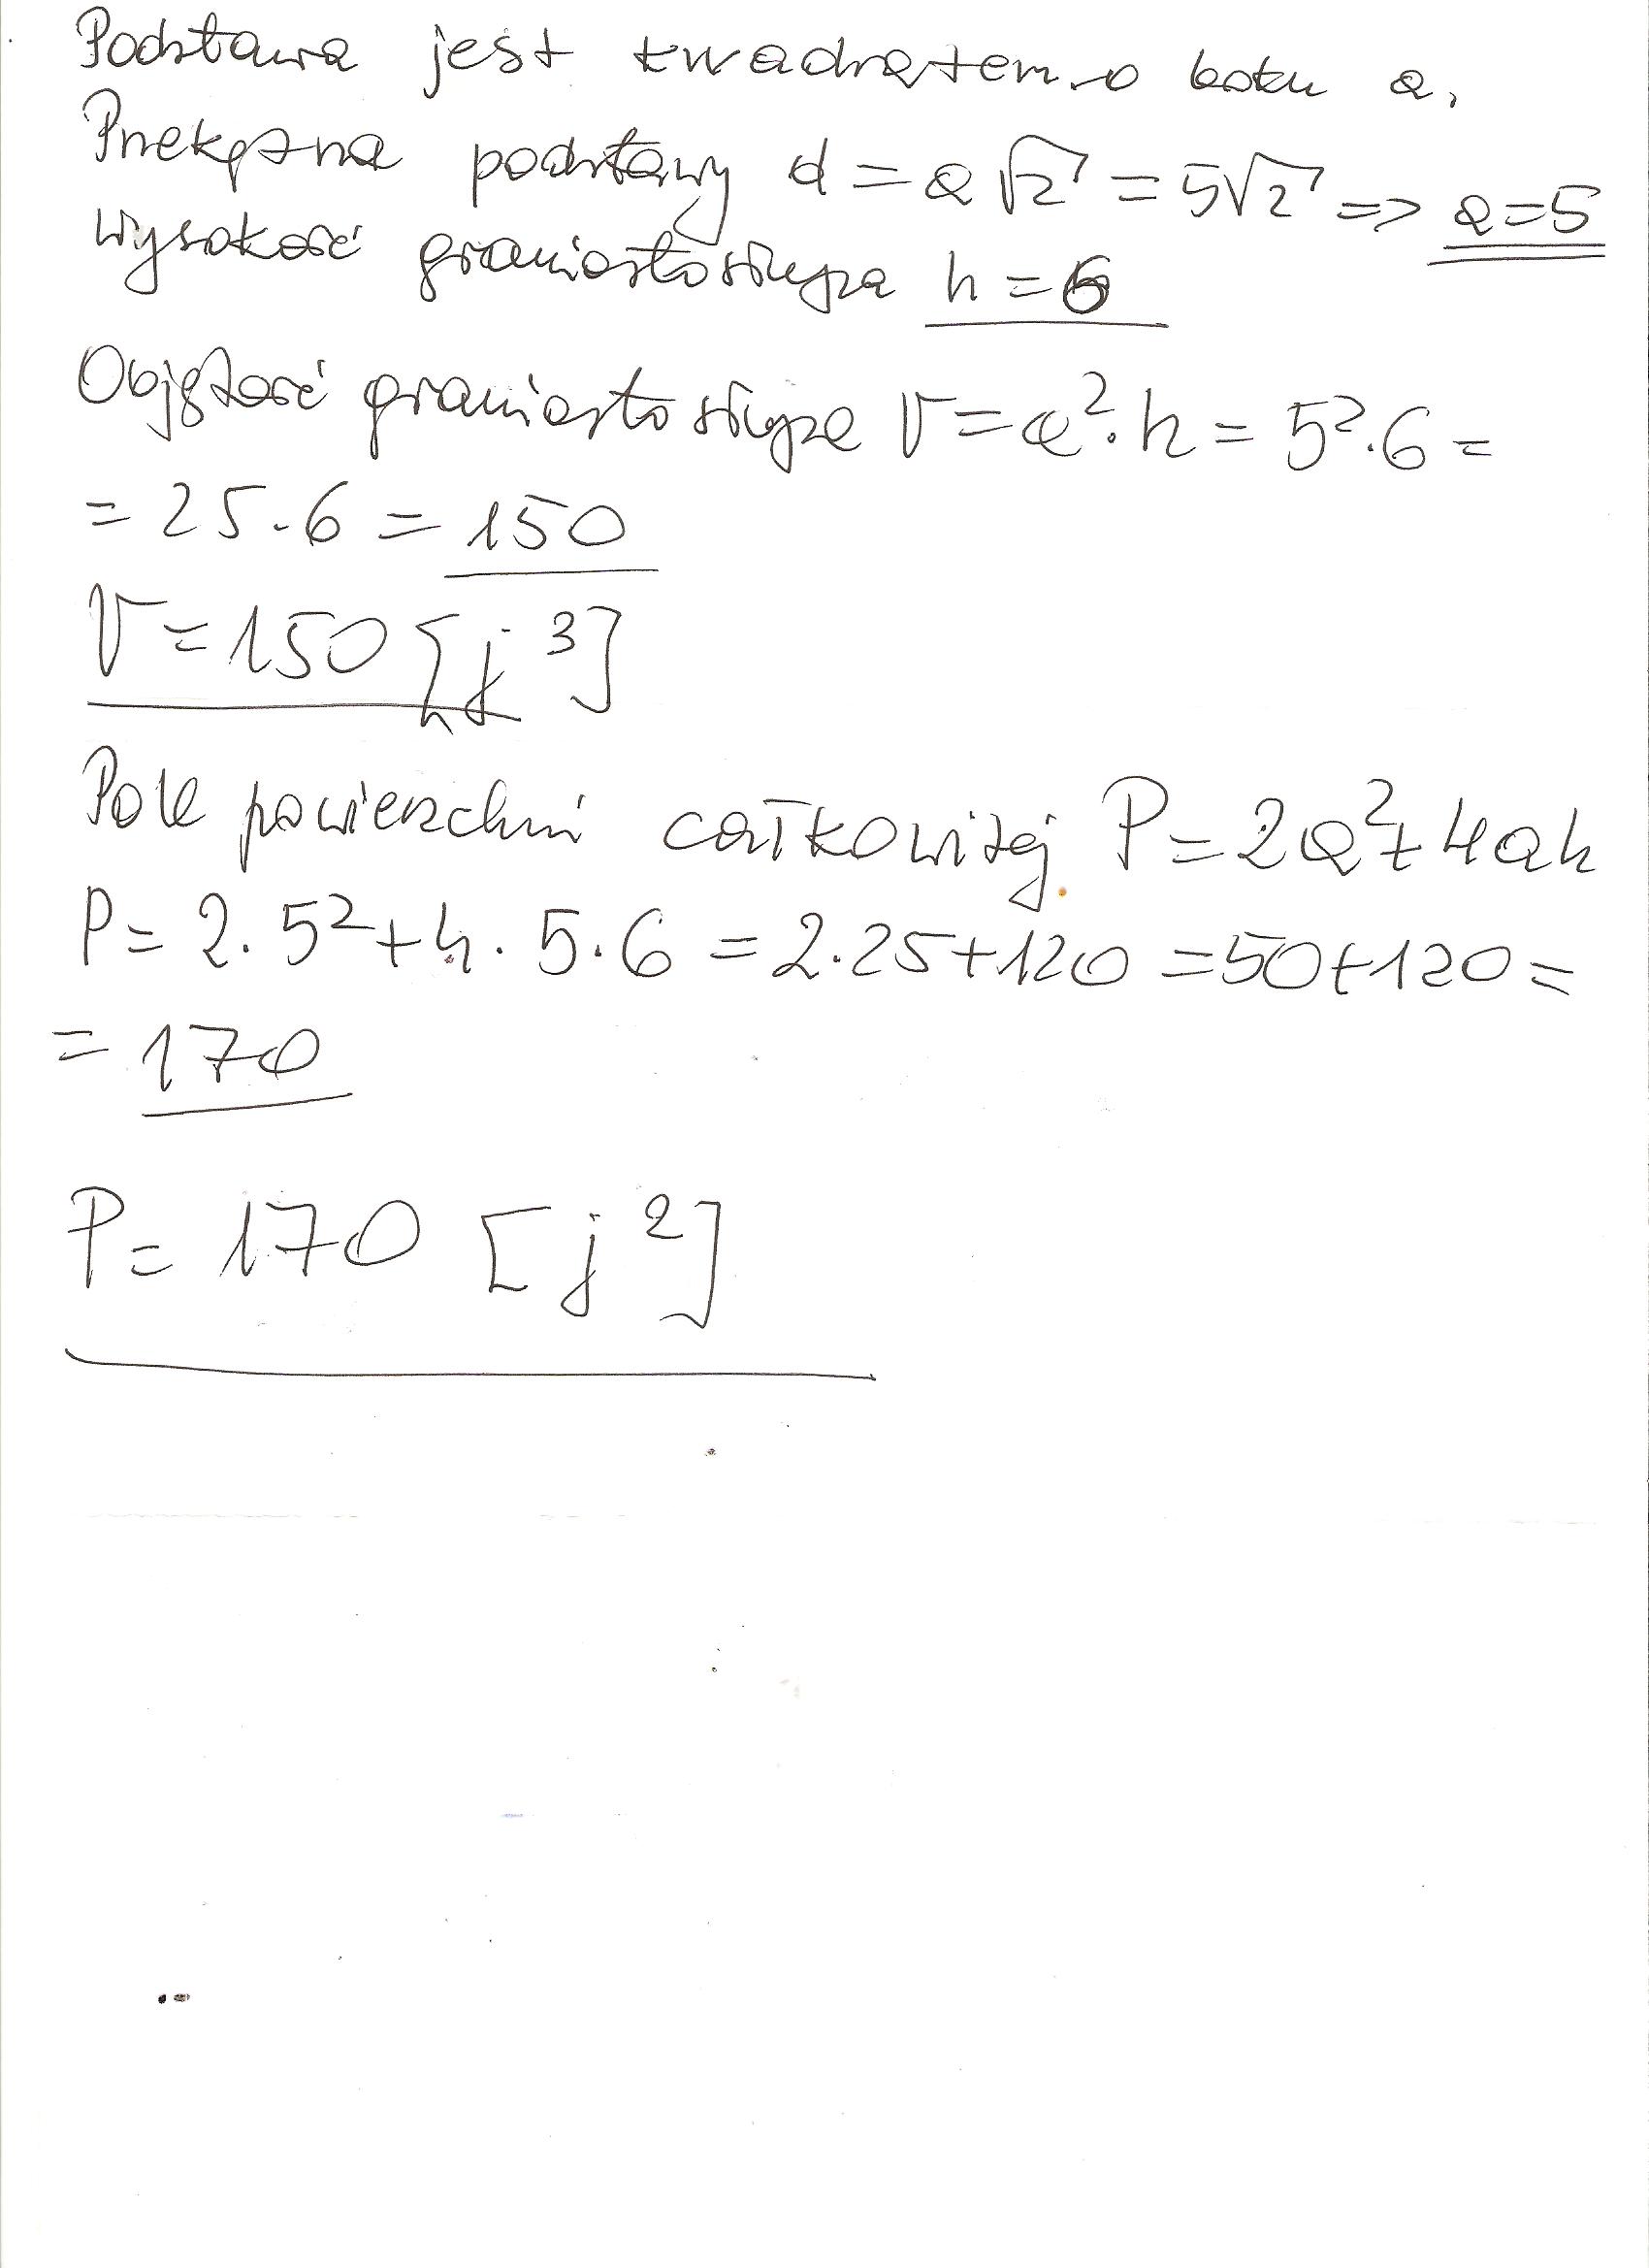 Podstawa jest kwadratem o boku a.
Przekątna podstawy d = a√2 = 5√2 => a=5
Wysokość graniastosłupa h = 6
Objętość graniastosłupa V = a²·h = 5²·6 =
= 25·6 = 150
V = 150 [j³]
Pole powierzchni całkowitej P = 2a²+4ah
P = 2·5²+4·5·6 = 2·25+120 = 50+120 =
= 170
P = 170 [j²]